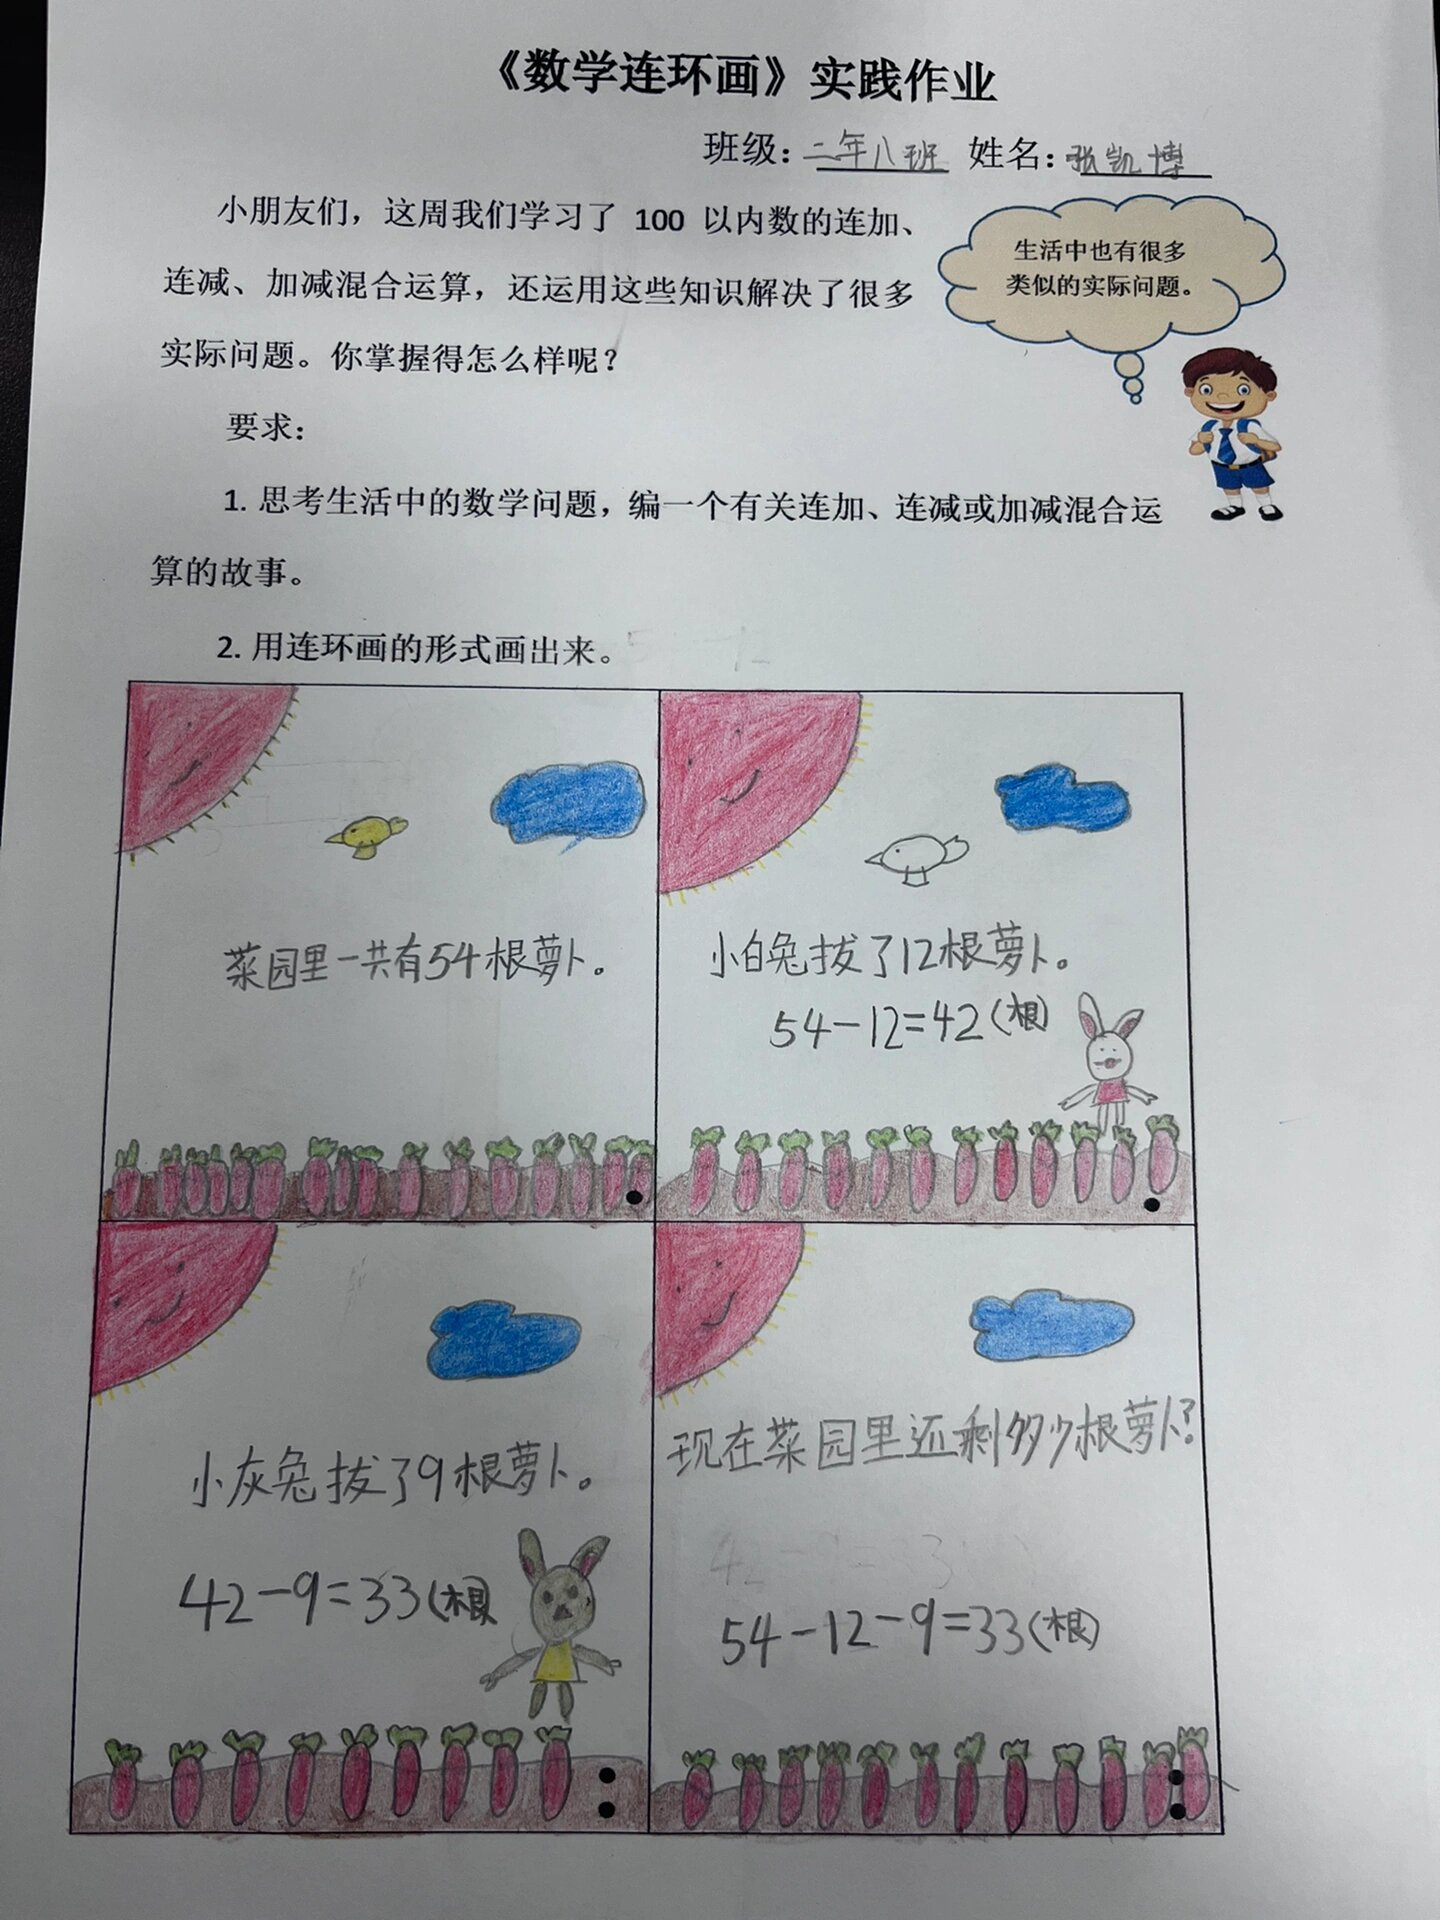 《数学连环画》实践作业
班级：二年八班 姓名：张凯博
小朋友们，这周我们学习了 100 以内数的连加、
连减、加减混合运算，还运用这些知识解决了很多
实际问题。你掌握得怎么样呢？
生活中也有很多
类似的实际问题。
要求：
1. 思考生活中的数学问题，编一个有关连加、连减或加减混合运
算的故事。
2. 用连环画的形式画出来。
菜园里一共有54根萝卜。
小白兔拔了12根萝卜。
54-12=42(根)
小灰兔拔了9根萝卜。
42-9=33(根)
现在菜园里还剩多少根萝卜?
54-12-9=33(根)